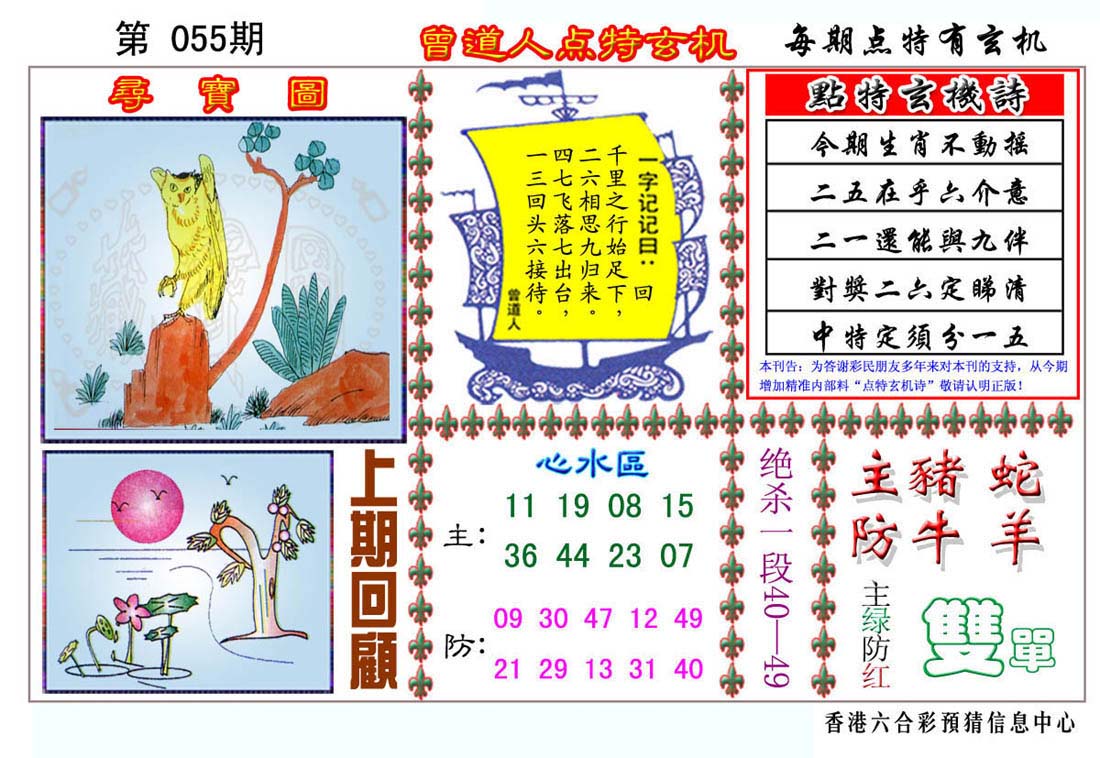 第 055期
曾道人点特玄机
每期点特有玄机
尋寶圖
一字记记曰：回
千里之行始足下，
二六相思九归来。
四七飞落七出台，
一三回头六接待。
曾道人
點特玄機詩
今期生肖不動摇
二五在乎六介意
二一還能與九伴
對獎二六定睇清
中特定須分一五
本刊告：为答谢彩民朋友多年来对本刊的支持，从今期
增加精准内部料“点特玄机诗”敬请认明正版！
上期回顧
心水區
主：
11 19 08 15
36 44 23 07
防：
09 30 47 12 49
21 29 13 31 40
绝杀一段40—49
主豬蛇
防牛羊
主绿防红
雙單
香港六合彩預猜信息中心